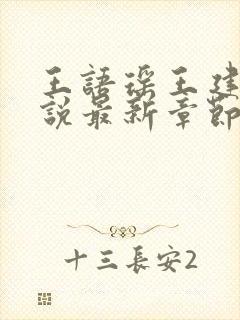 王語瑤王建
說最新章節
十三長安2